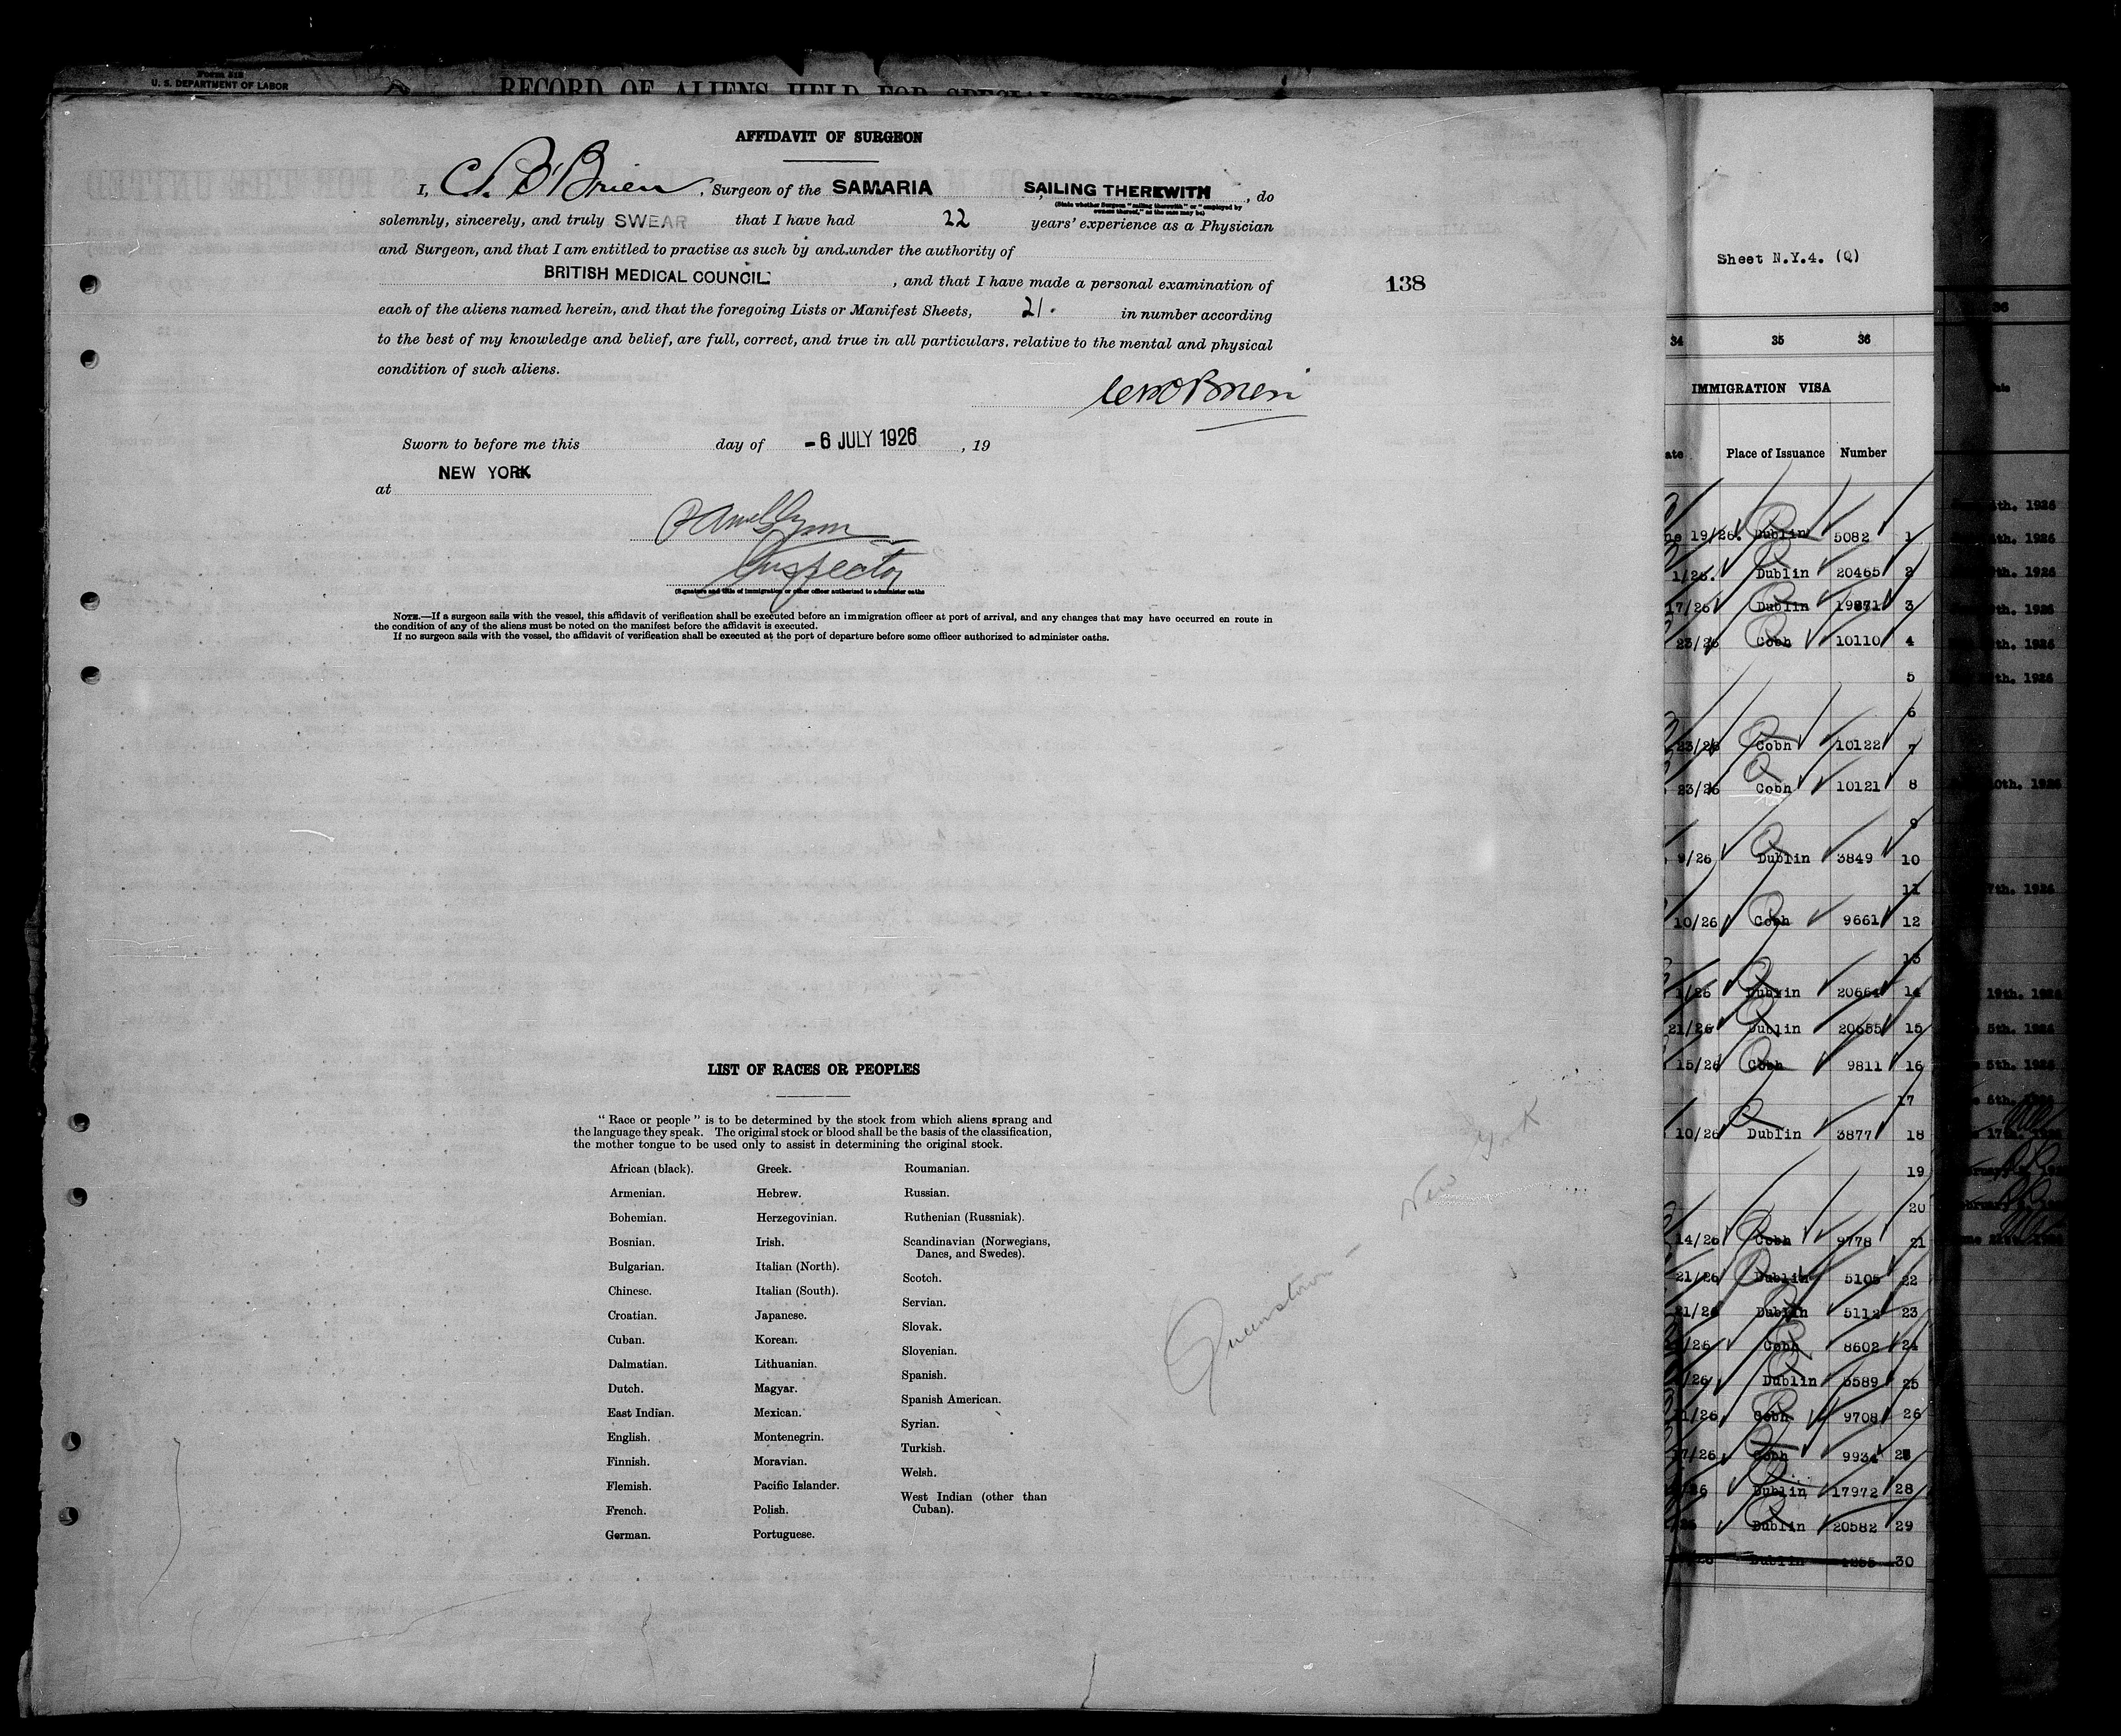 Form 518
U. S. DEPARTMENT OF LABOR
RECORD OF ALIENS HELD FOR SPECIAL
AFFIDAVIT OF SURGEON
I, C. O'Brien, Surgeon of the SAMARIA SAILING THEREWITH, do
(State whether Surgeon "sailing therewith" or "employed by
owners thereof," as the case may be)
solemnly, sincerely, and truly SWEAR that I have had 22 years' experience as a Physician
and Surgeon, and that I am entitled to practise as such by and under the authority of
BRITISH MEDICAL COUNCIL, and that I have made a personal examination of
138
each of the aliens named herein, and that the foregoing Lists or Manifest Sheets, 21. in number according
to the best of my knowledge and belief, are full, correct, and true in all particulars. relative to the mental and physical
condition of such aliens.
O'Brien
Sworn to before me this day of - 6 JULY 1926, 19
at NEW YORK
Inspector
(Signature and title of immigration or other officer authorized to administer oaths
NOTE.—If a surgeon sails with the vessel, this affidavit of verification shall be executed before an immigration officer at port of arrival, and any changes that may have occurred en route in
the condition of any of the aliens must be noted on the manifest before the affidavit is executed.
If no surgeon sails with the vessel, the affidavit of verification shall be executed at the port of departure before some officer authorized to administer oaths.
LIST OF RACES OR PEOPLES
"Race or people" is to be determined by the stock from which aliens sprang and
the language they speak. The original stock or blood shall be the basis of the classification,
the mother tongue to be used only to assist in determining the original stock.
African (black).
Armenian.
Bohemian.
Bosnian.
Bulgarian.
Chinese.
Croatian.
Cuban.
Dalmatian.
Dutch.
East Indian.
English.
Finnish.
Flemish.
French.
German.
Greek.
Hebrew.
Herzegovinian.
Irish.
Italian (North).
Italian (South).
Japanese.
Korean.
Lithuanian.
Magyar.
Mexican.
Montenegrin.
Moravian.
Pacific Islander.
Polish.
Portuguese.
Roumanian.
Russian.
Ruthenian (Russniak).
Scandinavian (Norwegians,
Danes, and Swedes).
Scotch.
Servian.
Slovak.
Slovenian.
Spanish.
Spanish American.
Syrian.
Turkish.
Welsh.
West Indian (other than
Cuban).
Queenstown - New York
Sheet N.Y.4. (Q)
34 35 36
IMMIGRATION VISA
ate Place of Issuance Number
ne 19/26. Dublin 5082 1
1/26. Dublin 20465 2
17/26 Dublin 19871 3
23/26 Cobh 10110 4
5
6
23/26 Cobh 10122 7
23/26 Cobh 10121 8
9
9/26 Dublin 3849 10
11
10/26 Cobh 9661 12
13
1/26 Dublin 20664 14
21/26 Dublin 20655 15
15/26 Cobh 9811 16
17
10/26 Dublin 3877 18
19
20
14/26 Cobh 9778 21
21/26 Dublin 5105 22
21/26 Dublin 5112 23
/26 Cobh 8602 24
/26 Dublin 5589 25
21/26 Cobh 9708 26
17/26 Cobh 9934 27
/26 Dublin 17972 28
Dublin 20582 29
Dublin 1255 30
36
th. 1926
th. 1926
th. 1926
th. 1926
th. 1926
th. 1926
0th. 1926
7th. 1926
19th. 1926
5th. 1926
5th. 1926
6th.
17th.